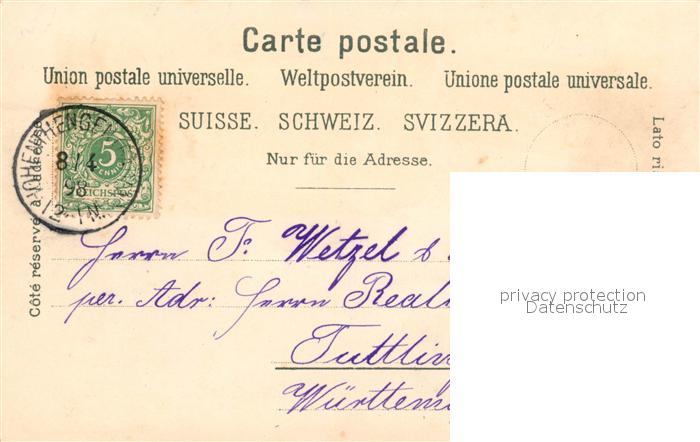 Carte postale.
Union postale universelle. Weltpostverein. Unione postale universale.
SUISSE. SCHWEIZ. SVIZZERA.
Nur für die Adresse.
Côté réservé à l'adresse.
Lato ris
HOHENTHENGEN
8/4
98
12-1N.
5
PFENNIG
REICHSPOST
Herrn F. Wetzel
per. Adr: Herrn Real
Tuttlin
Württem
privacy protection
Datenschutz